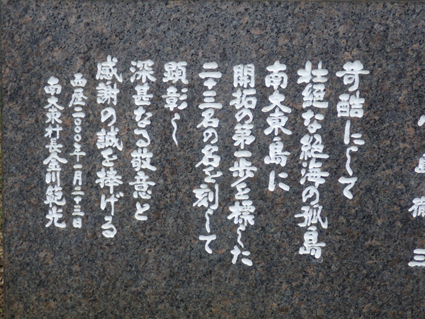 島 徹 三
奇酷にして
壮絶な絶海の孤島
南大東島に
開拓の第一歩を標した
二十三名の名を刻して
顕彰し
深甚なる敬意と
感謝の誠を捧げる
西歴二〇〇〇年一月二十三日
南大東村長金川範光